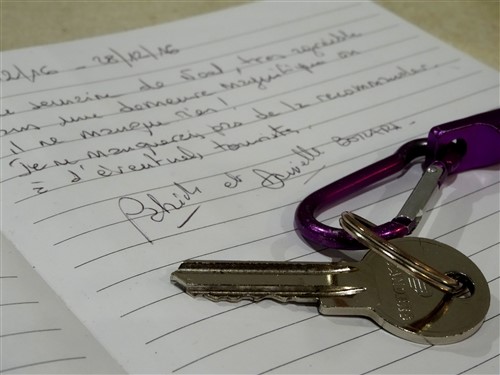 2/16 - 28/12/16
semaine de Noël, très agréable
dans une demeure magnifique où
il ne manque rien !
Je ne manquerais pas de la recommander
à d'éventuels touristes.
Patrick et Danielle